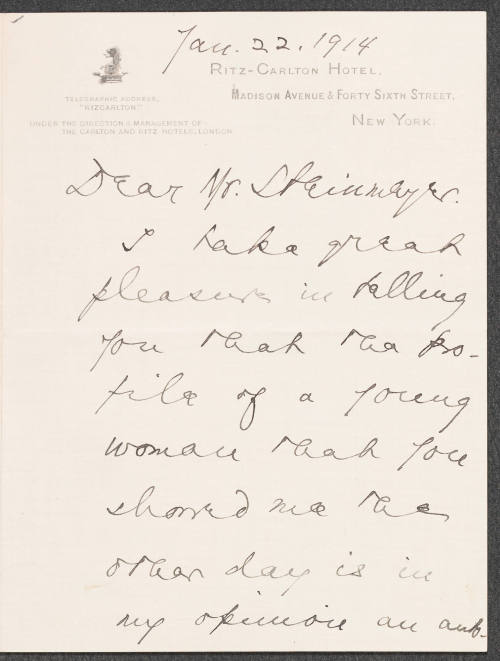 Jan. 22. 1914
RITZ-CARLTON HOTEL.
MADISON AVENUE & FORTY SIXTH STREET.
NEW YORK.
TELEGRAPHIC ADDRESS,
"RIZCARLTON."
UNDER THE DIRECTION & MANAGEMENT OF
THE CARLTON AND RITZ HOTELS, LONDON
Dear Mr. Steinmeyer.
I take great
pleasure in telling
you that the pro-
file of a young
woman that you
showed me the
other day is in
my opinion an aut-